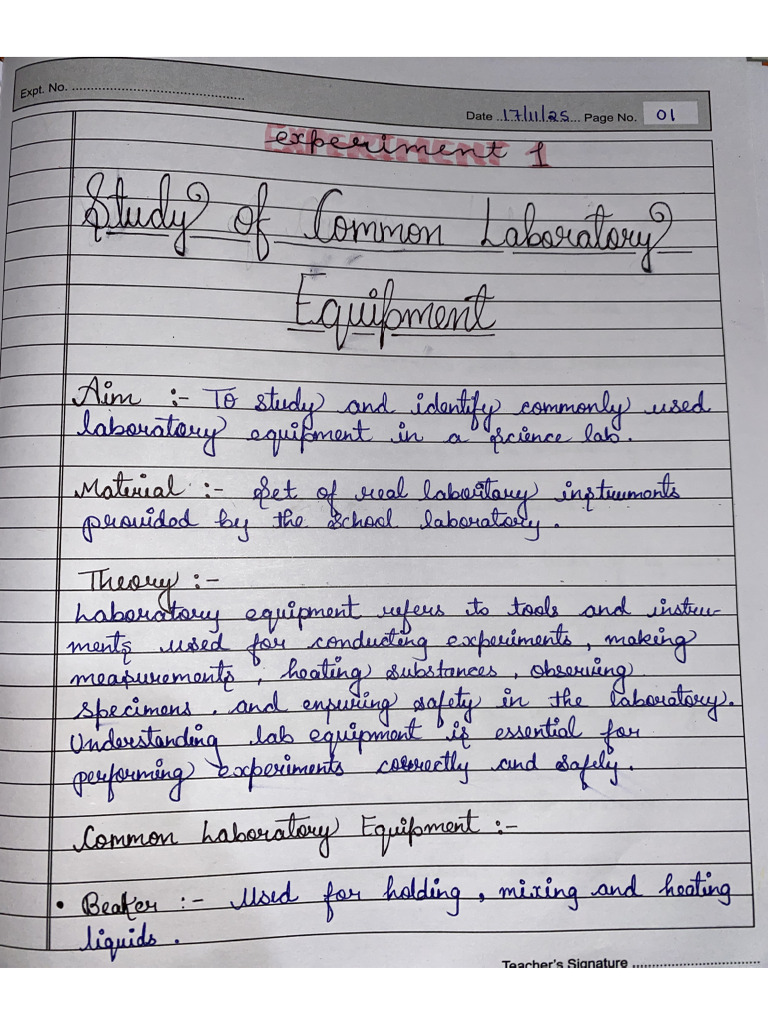 Expt. No. ........................................
Date ..17/11/25... Page No. 01
experiment 1
Study of Common Laboratory
Equipment
Aim :- To study and identify commonly used
laboratory equipment in a science lab.
Material :- Set of real laboritary instruments
provided by the school laboratory.
Theory :-
Laboratory equipment refers to tools and instru-
ments used for conducting experiments, making
measurements, heating substances, observing
specimens, and ensuring safety in the laboratory.
Understanding lab equipment is essential for
performing experiments correctly and safely.
Common Laboratory Equipment :-
• Beaker :- Used for holding, mixing and heating
liquids.
Teacher's Signature ....................................